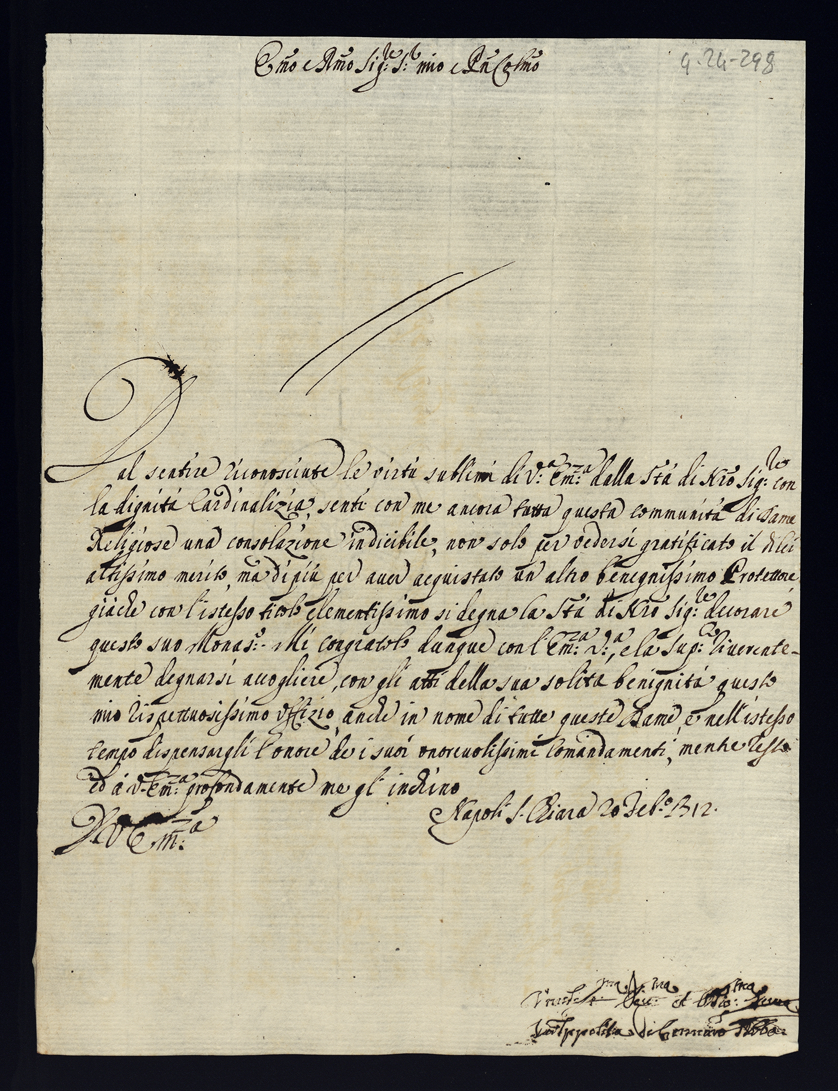 Em̃o e Rm̃o Sig:re S:r mio e Pn͂ Col̃mo
9-24-298
Dal sentire riconosciute le virtù sublimi di V:a Em:za dalla Stà di Nr̃o Sig:re con
la dignità Cardinalizia, sentì con me ancora tutta questa communità di Dame
Religiose una consolazione indicibile, non solo per vedersi gratificato il di lei
altissimo merito, ma di più per aver acquistato un' altro benegnissimo Protettore
giache con l'istesso titolo clementissimo si degna la Stà di Nr̃o Sig:re decorare
questo suo Monas:o. Mi congratolo dunque con l'Em:za V:a, e la Sup:co riverente-
mente degnarsi accogliere, con gli atti della sua solita benignità questo
mio rispettuosissimo offizio, anche in nome di tutte queste Dame e nell'istesso
tempo dispensargli l'onore de i suoi onorevolissimi Comandamenti, mentre resto
ed à V. Em:za profondamente me gl' inchino
D. V. Em:za
Napoli S. Chiara 20 Feb:o
et
Ippolita di Gennaro